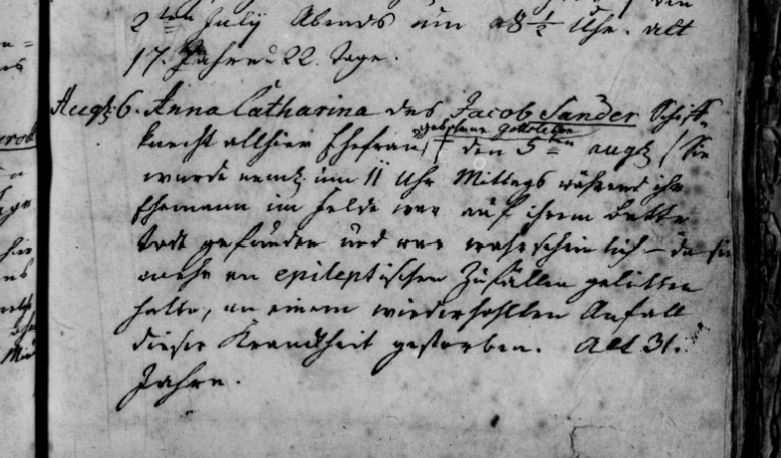 2ten July Abends um 8½ Uhr. alt
17. Jahre u 22. Tage.
Augt. 6. Anna Catharina des Jacob Sander Schiff-
geborene
knecht allhier Ehefrau, † den 5ten augt (Sie
wurde nemt. um 11 Uhr Mittags während ihr
Ehemann im Felde war auf ihrem Bette
todt gefunden und war wahrscheinlich – da sie
mehr an epileptischen Zufällen gelitten
hatte, an einem wiederhohlten Anfall
dieser Krankheit gestorben. Alt 31.
Jahre.